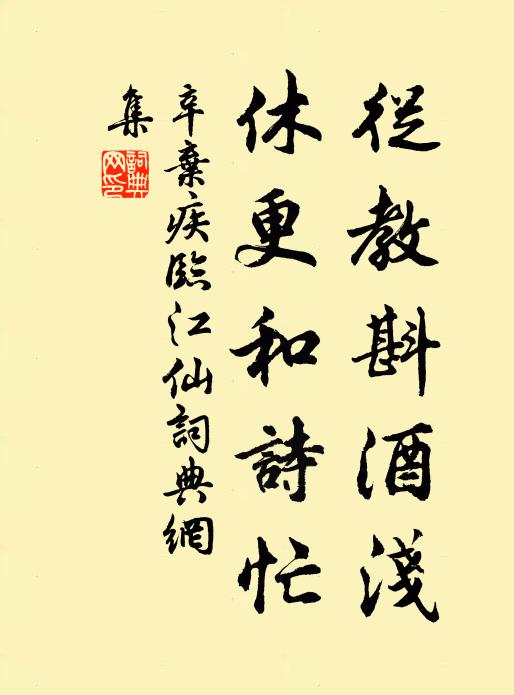 從教斟酒淺
休更和詩忙
辛棄疾臨江仙詞典網
集
詞典
网印